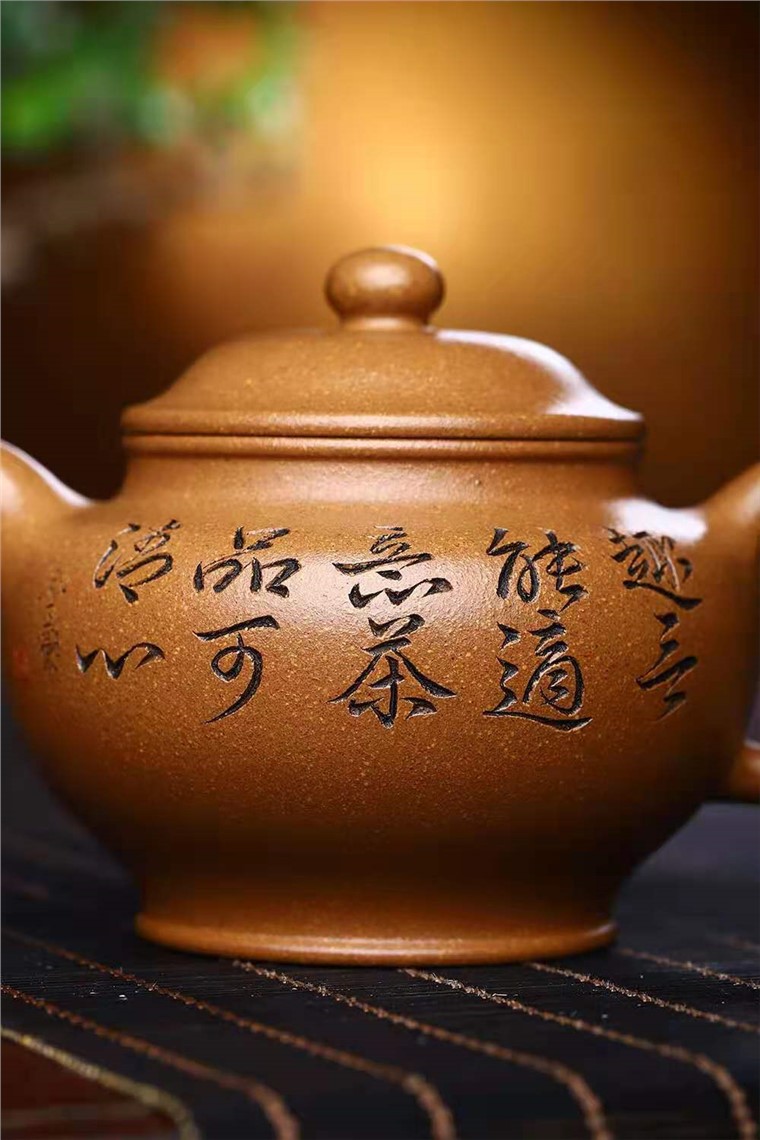 趣言
能適
意茶
品可
清心